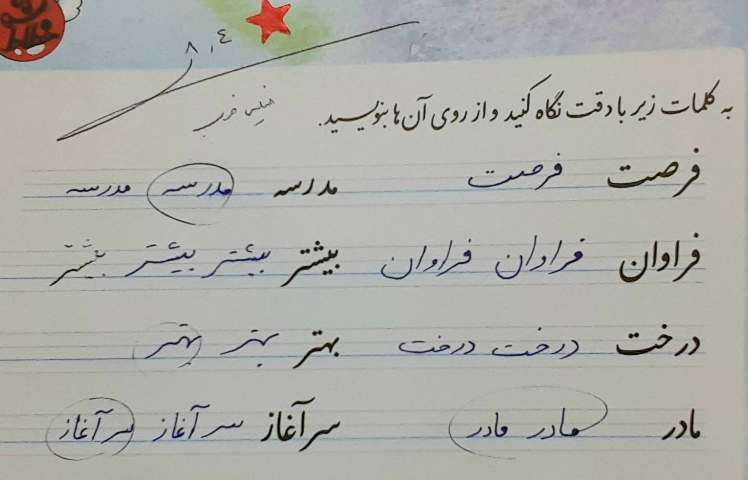 ۸٫۴
به کلمات زیر با دقت نگاه کنید و از روی آن ها بنویسید.
خیلی خوب
فرصت فرصت مدرسه مدرسه مدرسه
فراوان فراوان فراوان بیشتر بیشتر بیشتر بیشتر
درخت درخت درخت بهتر بهتر بهتر
مادر مادر مادر سرآغاز سرآغاز سرآغاز